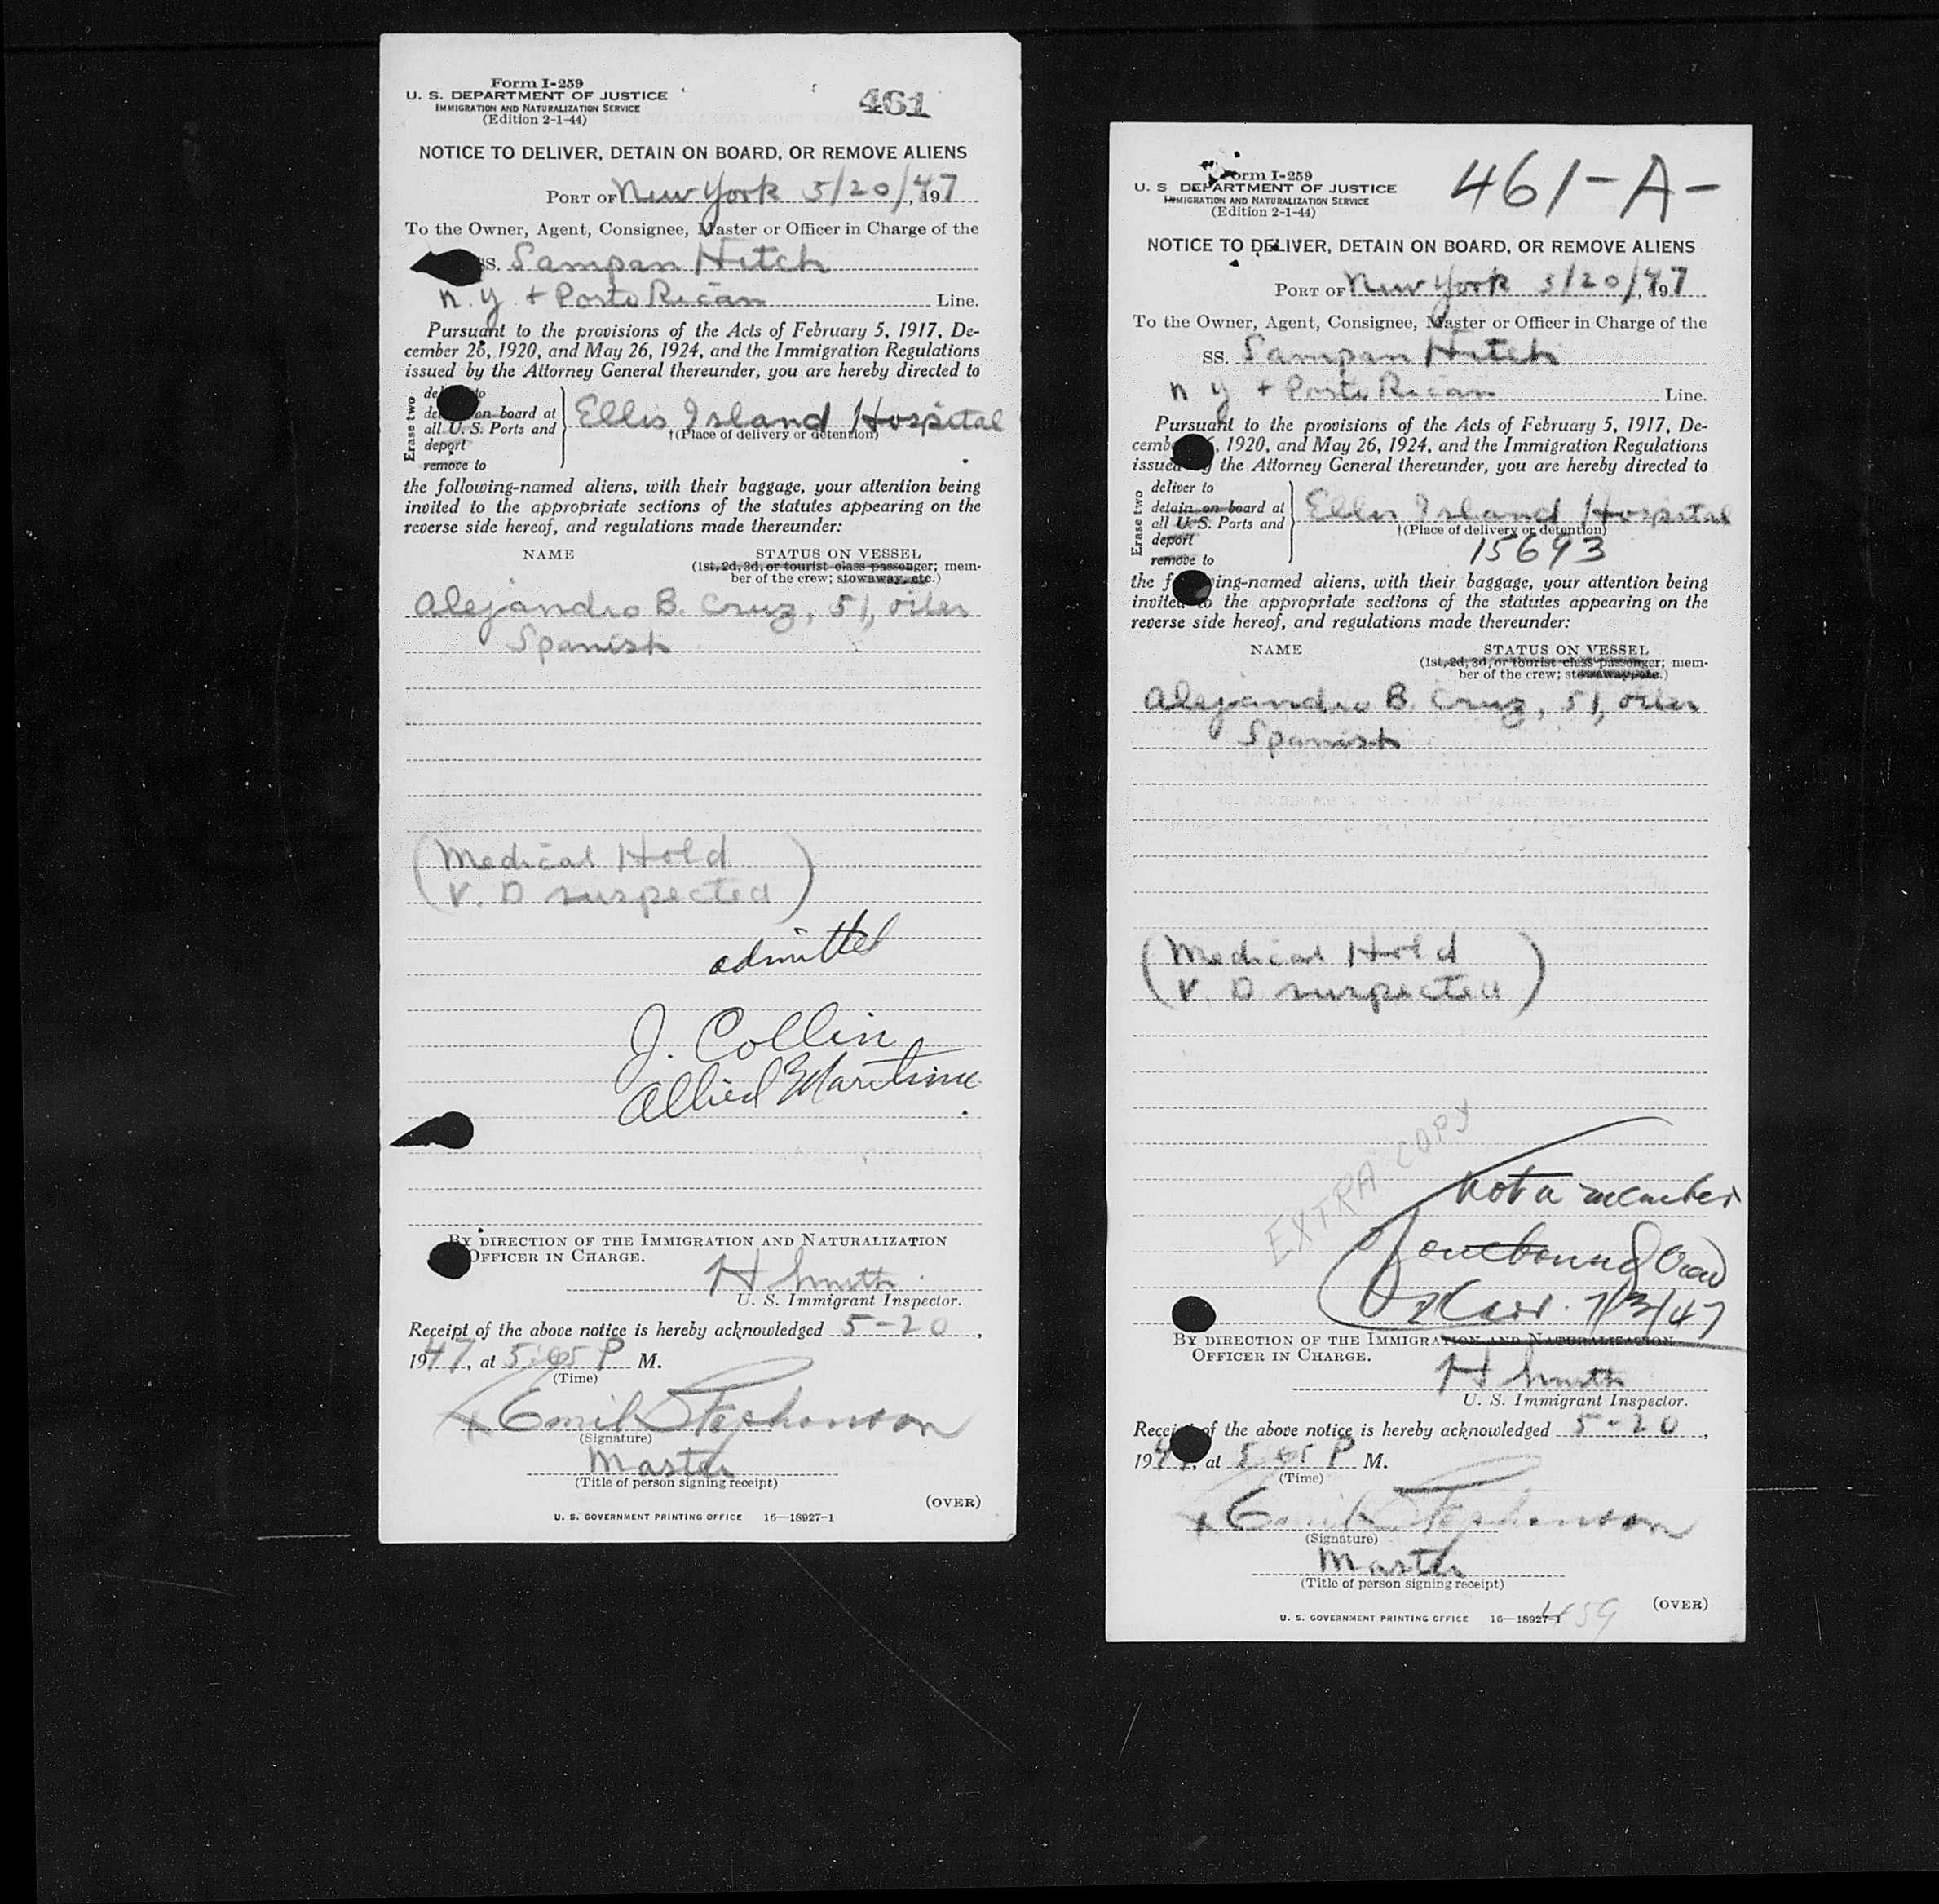 Form I-259
U. S. DEPARTMENT OF JUSTICE
IMMIGRATION AND NATURALIZATION SERVICE
(Edition 2-1-44)
461
NOTICE TO DELIVER, DETAIN ON BOARD, OR REMOVE ALIENS
PORT OF New York 5/20/, 1947
To the Owner, Agent, Consignee, Master or Officer in Charge of the
SS. Sampan Hitch
N. Y. + Porto Rican Line.
Pursuant to the provisions of the Acts of February 5, 1917, De-
cember 26, 1920, and May 26, 1924, and the Immigration Regulations
issued by the Attorney General thereunder, you are hereby directed to
Erase two
to
on board at
all U. S. Ports and
deport
remove to
Ellis Island Hospital
†(Place of delivery or detention)
the following-named aliens, with their baggage, your attention being
invited to the appropriate sections of the statutes appearing on the
reverse side hereof, and regulations made thereunder:
NAME STATUS ON VESSEL
(1st, 2d, 3d, or tourist class passenger; mem-
ber of the crew; stowaway, etc.)
Alejandro B. Cruz, 51, oiler
Spanish
(Medical Hold
V. D suspected)
admitted
J. Collin
Allied Maritime
BY DIRECTION OF THE IMMIGRATION AND NATURALIZATION
OFFICER IN CHARGE.
H Smith
U. S. Immigrant Inspector.
Receipt of the above notice is hereby acknowledged 5-20,
1947, at 5:05 P M.
(Time)
x Emil Stephenson
(Signature)
Master
(Title of person signing receipt)
(OVER)
U. S. GOVERNMENT PRINTING OFFICE 16—18927-1
Form I-259
U. S DEPARTMENT OF JUSTICE
IMMIGRATION AND NATURALIZATION SERVICE
(Edition 2-1-44)
461-A-
NOTICE TO DELIVER, DETAIN ON BOARD, OR REMOVE ALIENS
PORT OF New York 5/20/, 1947
To the Owner, Agent, Consignee, Master or Officer in Charge of the
SS. Sampan Hitch
N Y + Porto Rican Line.
Pursuant to the provisions of the Acts of February 5, 1917, De-
, 1920, and May 26, 1924, and the Immigration Regulations
issued the Attorney General thereunder, you are hereby directed to
Erase two
deliver to
detain on board at
all U. S. Ports and
deport
remove to
Ellis Island Hospital
†(Place of delivery or detention)
15693
the following-named aliens, with their baggage, your attention being
invited to the appropriate sections of the statutes appearing on the
reverse side hereof, and regulations made thereunder:
NAME STATUS ON VESSEL
(1st, 2d, 3d, or tourist class passenger; mem-
ber of the crew; stowaway, etc.)
Alejandro B. Cruz, 51, oiler
Spanish
(Medical Hold
V. D suspected)
EXTRA COPY
not a member
of outbound Crew
7/3/47
BY DIRECTION OF THE IMMIGRATION AND NATURALIZATION
OFFICER IN CHARGE.
H Smith
U. S. Immigrant Inspector.
Receipt of the above notice is hereby acknowledged 5-20,
1947, at 5 05 P M.
(Time)
x Emil Stephenson
(Signature)
Master
(Title of person signing receipt)
(OVER)
U. S. GOVERNMENT PRINTING OFFICE 16—18927-1